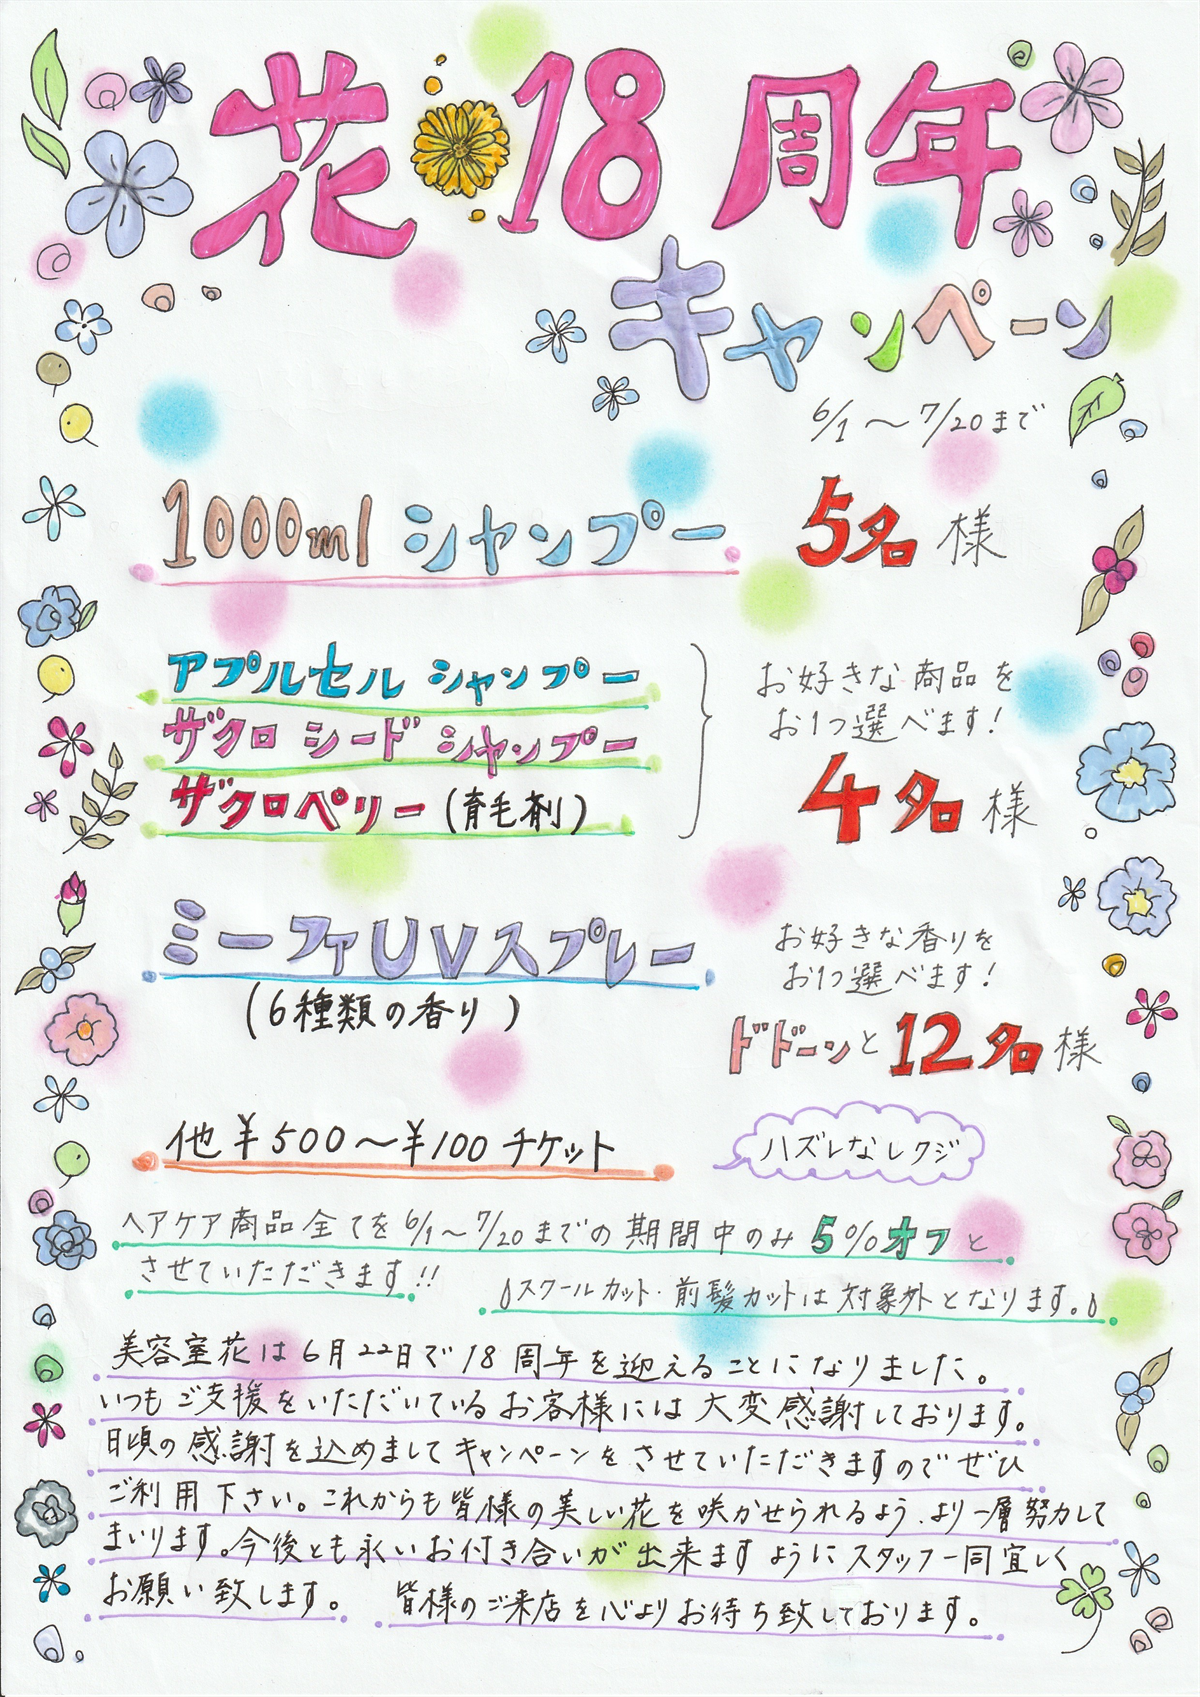 花 18周年
キャンペーン
6/1〜7/20まで
1000ml シャンプー 5名様
アプルセル シャンプー
ザクロ シード シャンプー
ザクロペリー(育毛剤)
お好きな商品を
お1つ選べます!
4名様
ミーファUVスプレー
(6種類の香り)
お好きな香りを
お1つ選べます!
ドドーンと12名様
他¥500〜¥100チケット
ハズレなしクジ
ヘアケア商品全てを6/1〜7/20までの期間中のみ5%オフと
させていただきます!!
スクールカット·前髪カットは対象外となります。
美容室花は6月22日で18周年を迎えることになりました。
いつもご支援をいただいているお客様には大変感謝しております。
日頃の感謝を込めましてキャンペーンをさせていただきますのでぜひ
ご利用下さい。これからも皆様の美しい花を咲かせられるよう、より一層努力して
まいります。今後とも永いお付き合いが出来ますようにスタッフ一同宜しく
お願い致します。 皆様のご来店を心よりお待ち致しております。